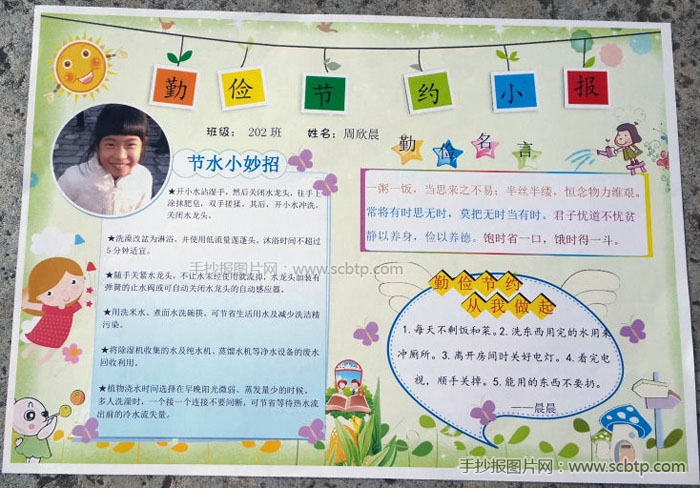 勤俭节约小报
班级： 202 班 姓名：周欣晨
节水小妙招
★开小水沾湿手，然后关闭水龙头，往手上
涂抹肥皂，双手搓揉，其后，开小水冲洗，
关闭水龙头。
★洗澡改盆为淋浴，并使用低流量莲蓬头，沐浴时间不超过
5 分钟适宜。
★随手关紧水龙头，不让水未经使用就流掉，水龙头加装有
弹簧的止水阀或可自动关闭水龙头的自动感应器。
★用洗米水、煮面水洗碗筷，可节省生活用水及减少洗洁精
污染。
★将除湿机收集的水及纯水机、蒸馏水机等净水设备的废水
回收利用。
★植物浇水时间选择在早晚阳光微弱、蒸发量少的时候，
多人洗澡时，一个接一个连接不要间断，可节省等待热水流
出前的冷水流失量。
勤俭名言
一粥一饭，当思来之不易；半丝半缕，恒念物力维艰。
常将有时思无时，莫把无时当有时。君子忧道不忧贫
静以养身，俭以养德。饱时省一口，饿时得一斗。
勤俭节约
从我做起
1.每天不剩饭和菜。2.洗东西用完的水用来
冲厕所。3.离开房间时关好电灯。4.看完电
视，顺手关掉。5.能用的东西不要扔。
——晨晨
手抄报图片网：www.scbtp.com
手抄报图片网：www.scbtp.com
手抄报图片网：www.scbtp.com